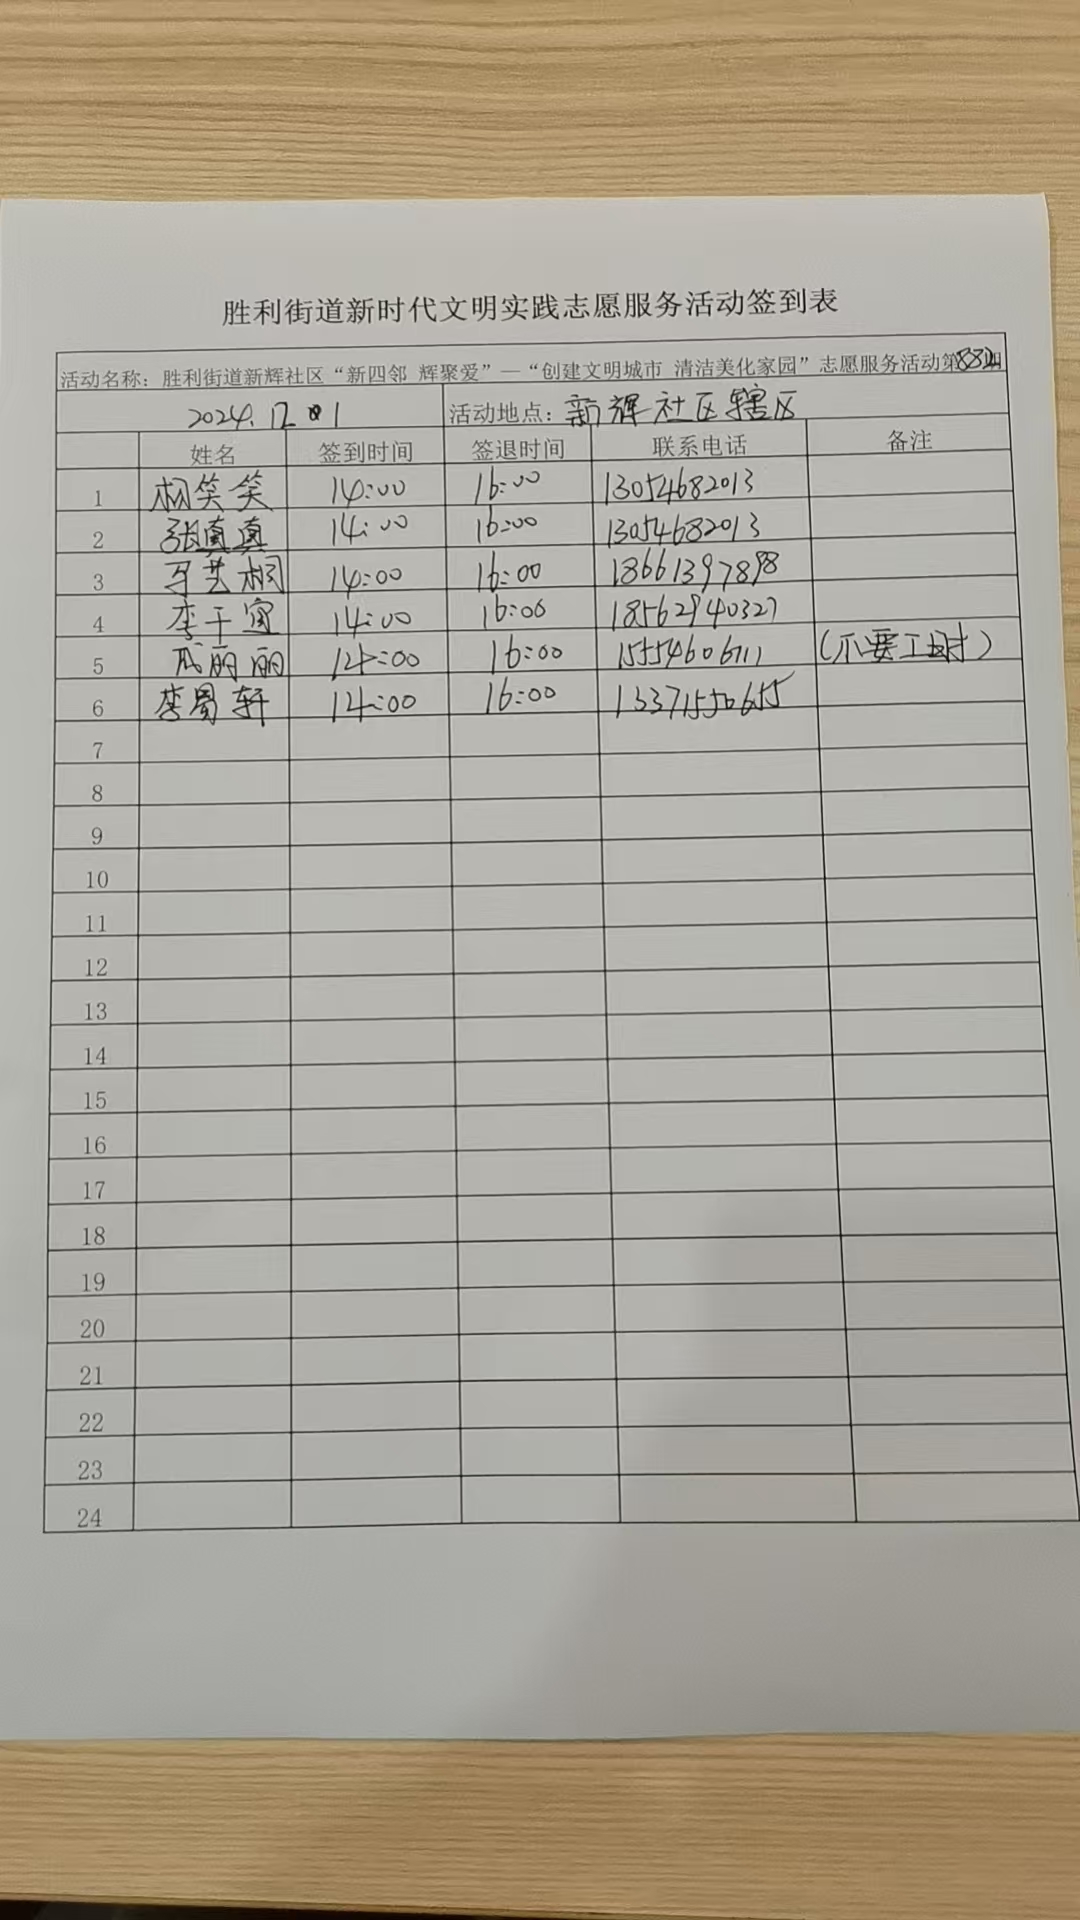 胜利街道新时代文明实践志愿服务活动签到表
活动名称：胜利街道新辉社区“新四邻 辉聚爱”—“创建文明城市 清洁美化家园”志愿服务活动第832期
2024.12.1 活动地点：新辉社区辖区
姓名 签到时间 签退时间 联系电话 备注
1 笑笑 14:00 16:00 13054682013
2 张真真 14:00 16:00 13054682013
3 艺桐 14:00 16:00 18661397898
4 李千寓 14:00 16:00 18562940327
5 丽丽 14:00 16:00 15554606711 (不要工时)
6 李蜀轩 14:00 16:00 13371550655
7
8
9
10
11
12
13
14
15
16
17
18
19
20
21
22
23
24